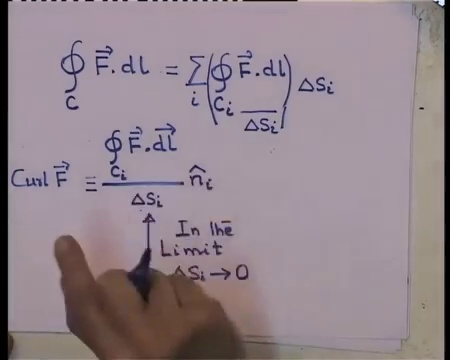 ∮_C F⃗ . dl = ∑_i (∮_{C_i} F⃗ . dl / ΔS_i) ΔS_i
Curl F⃗ ≡ ∮_{C_i} F⃗ . dl⃗ / ΔS_i n̂_i
In the
Limit
ΔS_i → 0